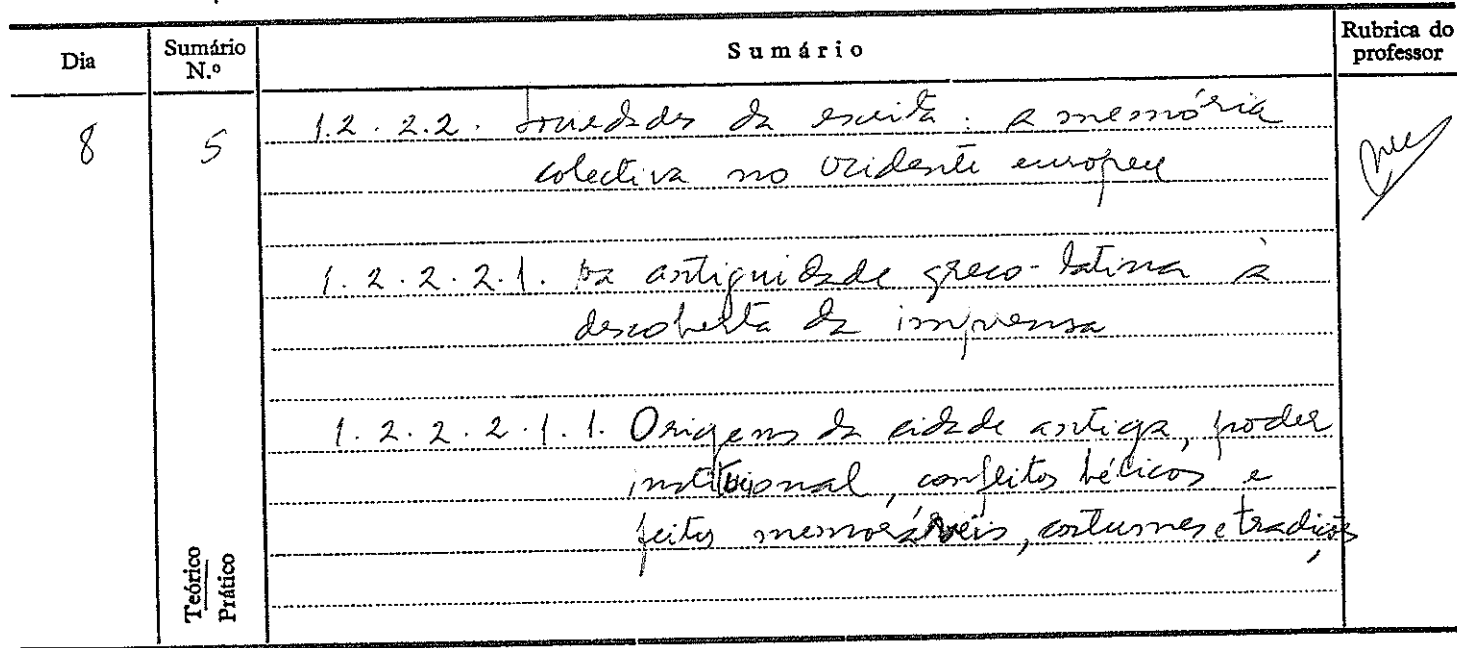 Dia Sumário N.º Sumário Rubrica do professor
8 5 1.2.2.2. Sociedades da escrita: a memória
colectiva no ocidente europeu
1.2.2.2.1. Da antiguidade greco-latina à
descoberta da imprensa
1.2.2.2.1.1. Origens da cidade antiga, poder
institucional, conflitos bélicos e
feitos memoráveis, costumes e tradições,
Teórico
Prático